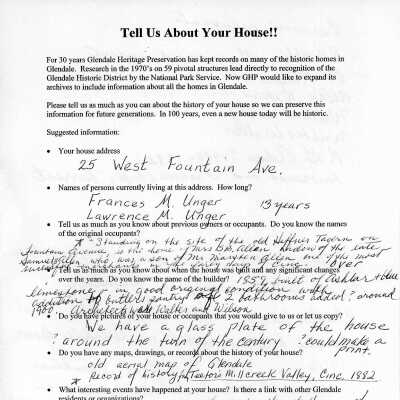 Tell Us About Your House!!
For 30 years Glendale Heritage Preservation has kept records on many of the historic homes in
Glendale. Research in the 1970's on 59 pivotal structures lead directly to recognition of the
Glendale Historic District by the National Park Service. Now GHP would like to expand its
archives to include information about all the homes in Glendale.
Please tell us as much as you can about the history of your house so we can preserve this
information for future generations. In 100 years, even a new house today will be historic.
Suggested information:
• Your house address
25 West Fountain Ave.
• Names of persons currently living at this address. How long?
Frances M. Unger 13 years
Lawrence M. Unger
• Tell us as much as you know about previous owners or occupants. Do you know the names
of the original occupants?
* "Standing on the site of the old Heffner Tavern on
Fountain Avenue, is the home of Mrs B.M. Allen widow of the late
Samuel Allen who was a son of Mr Marston Allen one of the most
• Tell us as much as you know about when the house was built and any significant changes
over the years. Do you know the name of the builder? 1859, built of Ashlar
limestone, in good original condition with
addition to butlers pantry 2 bathrooms added? around
1900. Architect Walter and Wilson
• Do you have pictures of your house or occupants that you would give to us or let us copy?
We have a glass plate of the house
around the turn of the century? could make a
print.
• Do you have any maps, drawings, or records about the history of your house?
old aerial map of Glendale
* Record of history Millcreek Valley, Cinc. 1882
• What interesting events have happened at your house? Is there a link with other Glendale
residents or organizations?